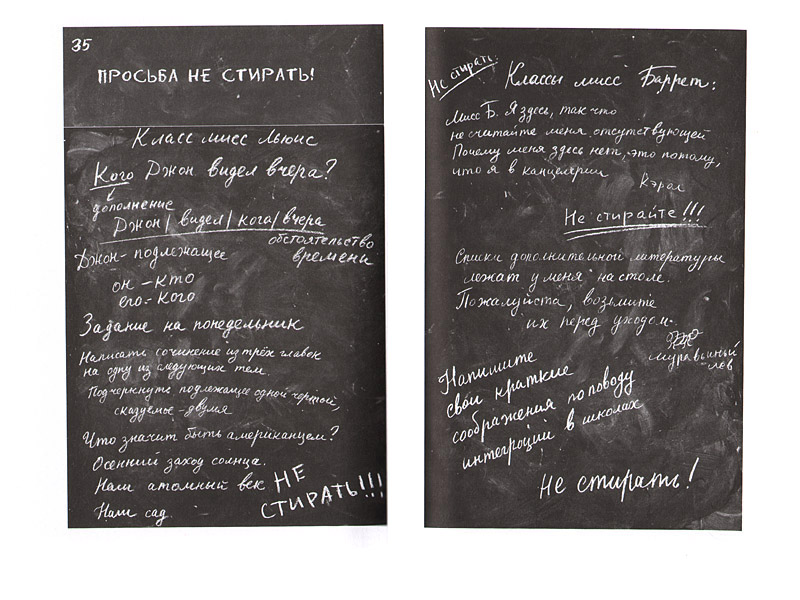 35
ПРОСЬБА НЕ СТИРАТЬ!
Класс мисс Льюис
Кого Джон видел вчера?
дополнение
Джон | видел | кога | вчера
обстоятельство
времени
Джон - подлежащее
он - кто
его - кого
Задание на понедельник
Написать сочинение из трёх главек
на одну из следующих тем.
Подчеркнуть подлежащее одной чертой,
сказуемое - двумя
Что значит быть американцем?
Осенний заход солнца.
Наш атомный век
Наш сад
НЕ
СТИРАТЬ!!!
Не стирать!
Классы мисс Баррет:
Мисс Б. Я здесь, так что
не считайте меня отсутствующей
Почему меня здесь нет, это потому,
что я в канцелярии
Кэрол
Не стирайте!!!
Списки дополнительной литературы
лежат у меня на столе.
Пожалуйста, возьмите
их перед уходом.
муравьиный
-лев
Напишите
свои краткие
соображения по поводу
интеграций в школах
Не стирать!